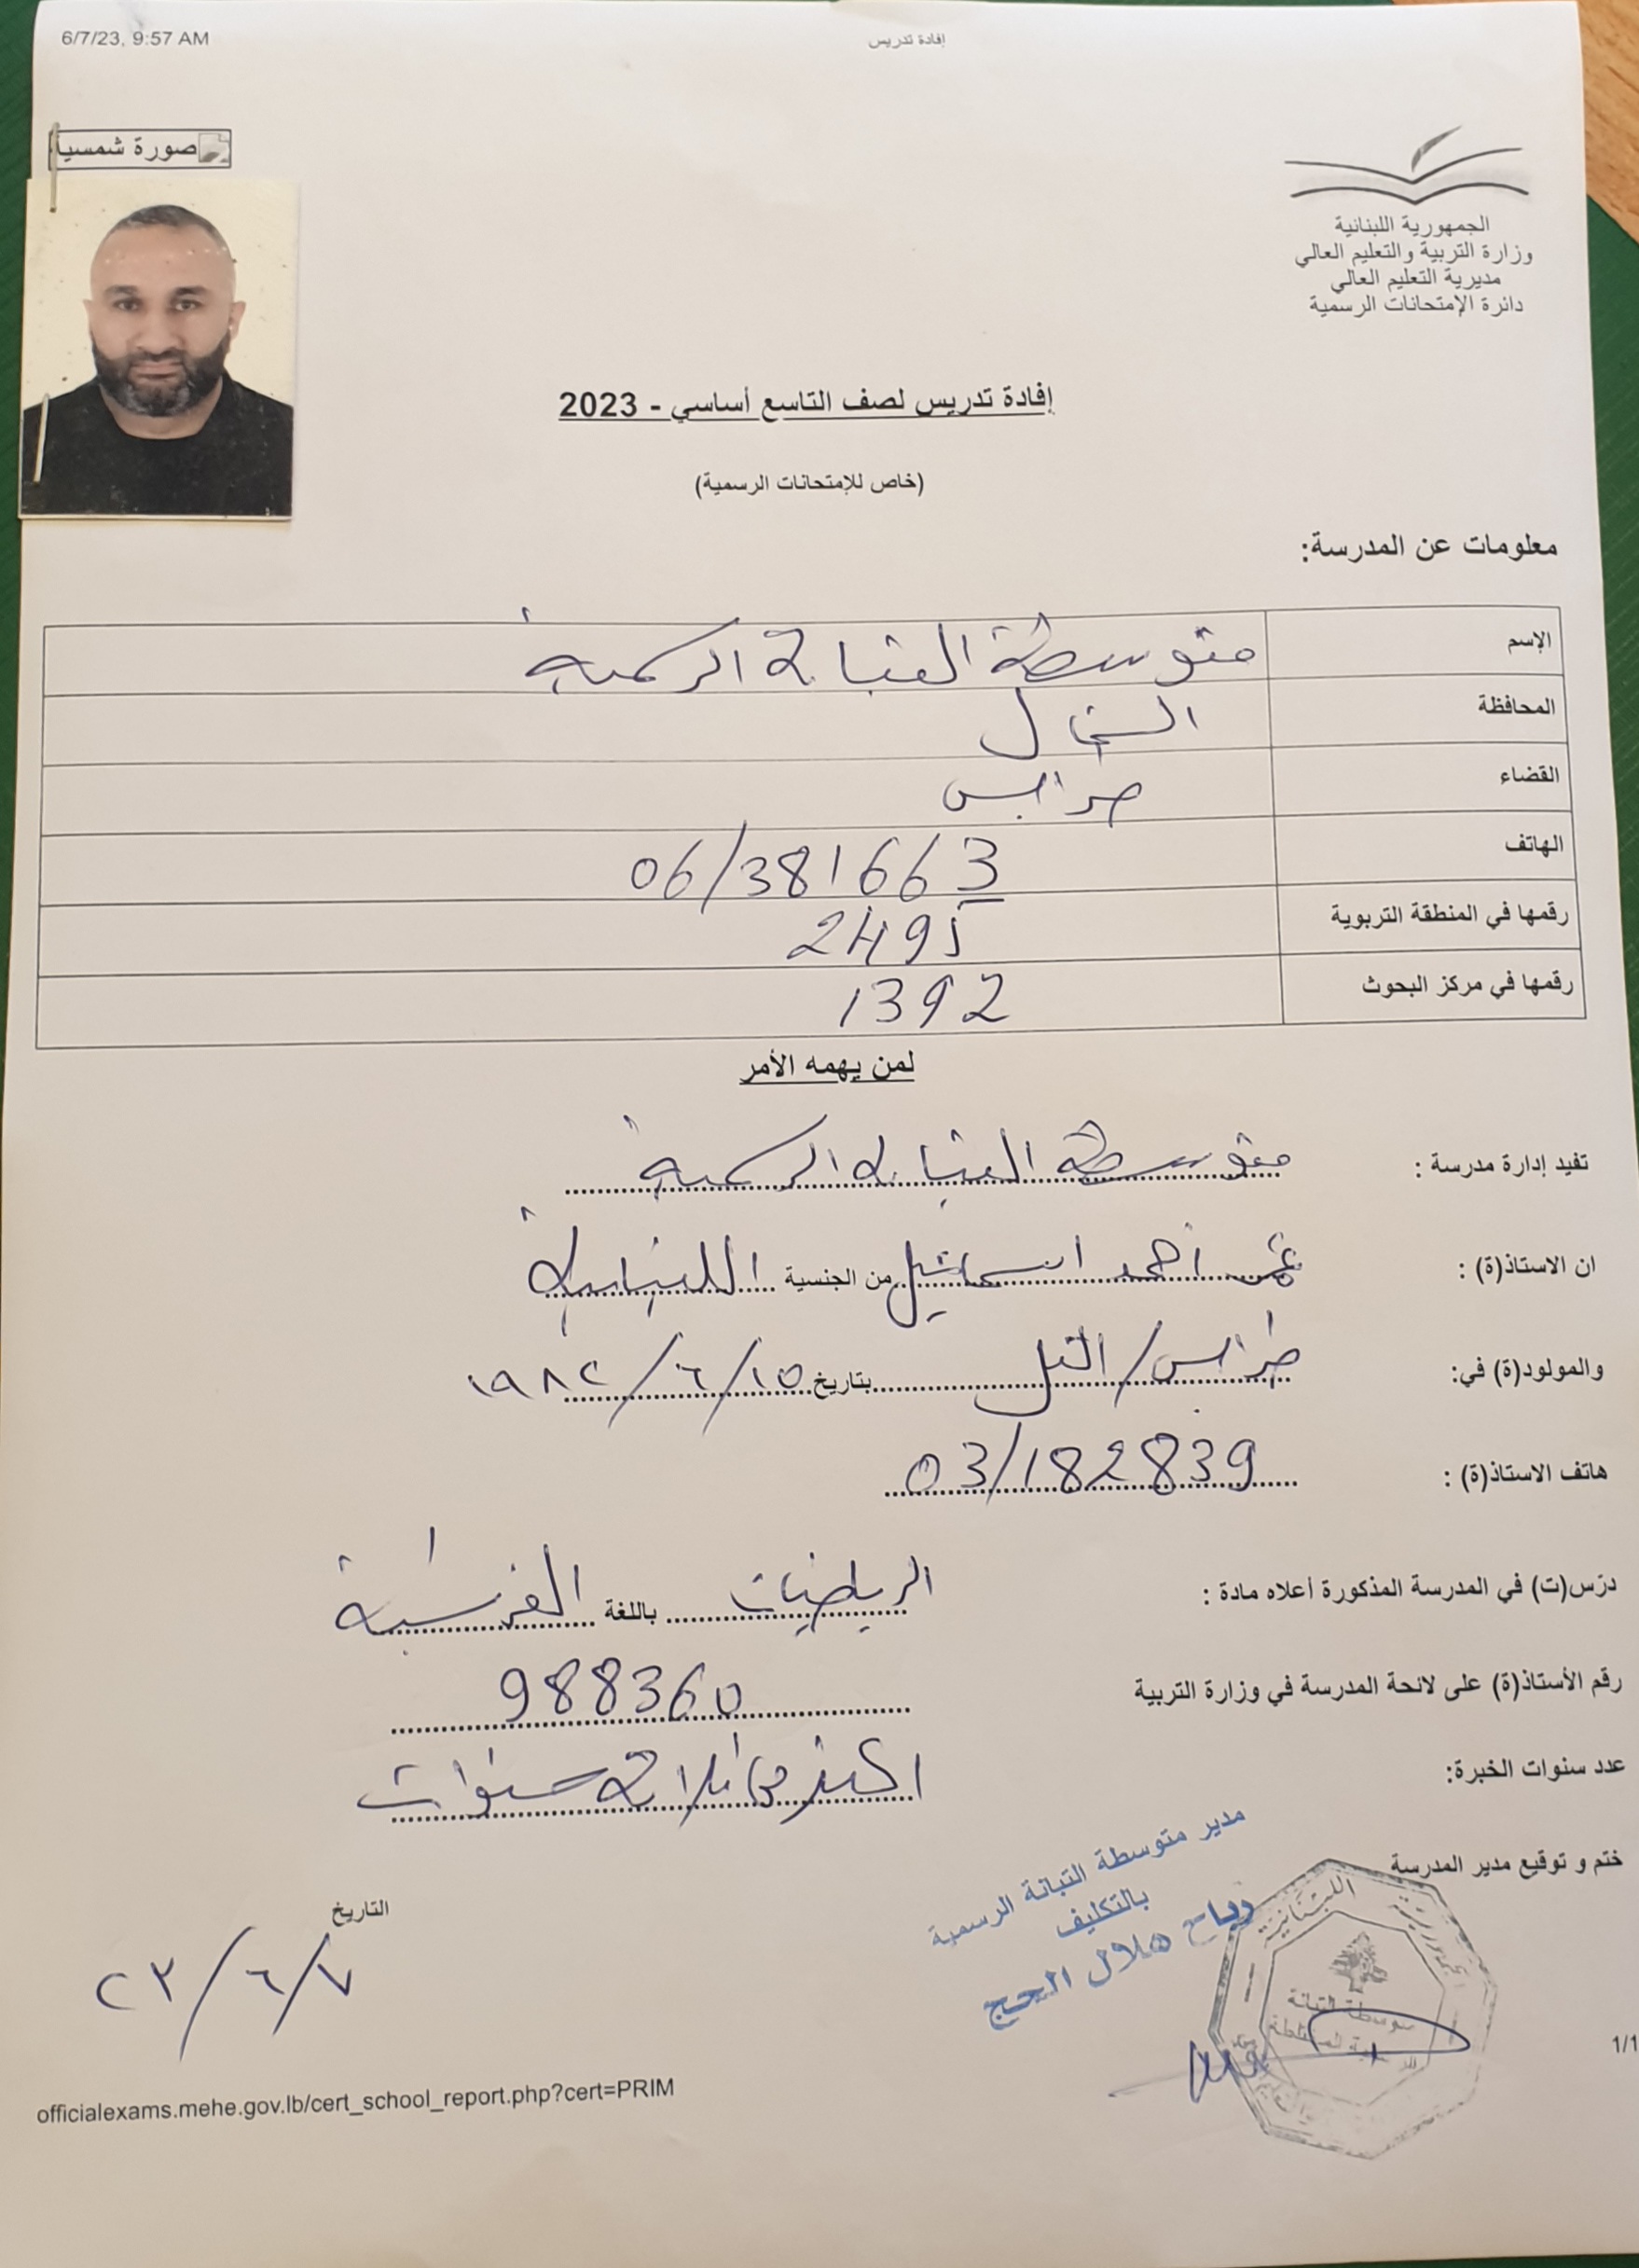 6/7/23, 9:57 AM
إفادة تدريس
صورة شمسية
الجمهورية اللبنانية
وزارة التربية والتعليم العالي
مديرية التعليم العالي
دائرة الإمتحانات الرسمية
إفادة تدريس لصف التاسع أساسي - 2023
(خاص للإمتحانات الرسمية)
معلومات عن المدرسة:
الإسم متوسطة التبانة الرسمية
المحافظة الشمال
القضاء طرابلس
الهاتف 06/381663
رقمها في المنطقة التربوية 2495
رقمها في مركز البحوث 1392
لمن يهمه الأمر
تفيد إدارة مدرسة : متوسطة التبانة الرسمية
ان الاستاذ(ة) : احمد اسماعيل من الجنسية اللبنانية
والمولود(ة) في: طرابلس/التل بتاريخ ١٩٨٢/٦/١٥
هاتف الاستاذ(ة) : 03/182839
درّس(ت) في المدرسة المذكورة أعلاه مادة : الرياضيات باللغة الفرنسية
رقم الأستاذ(ة) على لائحة المدرسة في وزارة التربية 988360
عدد سنوات الخبرة: اكثر من ثلاثة سنوات
ختم و توقيع مدير المدرسة
مدير متوسطة التبانة الرسمية
بالتكليف
رباح هلال الحج
اللبنانية
متوسطة التبانة
التاريخ
٢٣/٦/٧
1/1
officialexams.mehe.gov.lb/cert_school_report.php?cert=PRIM